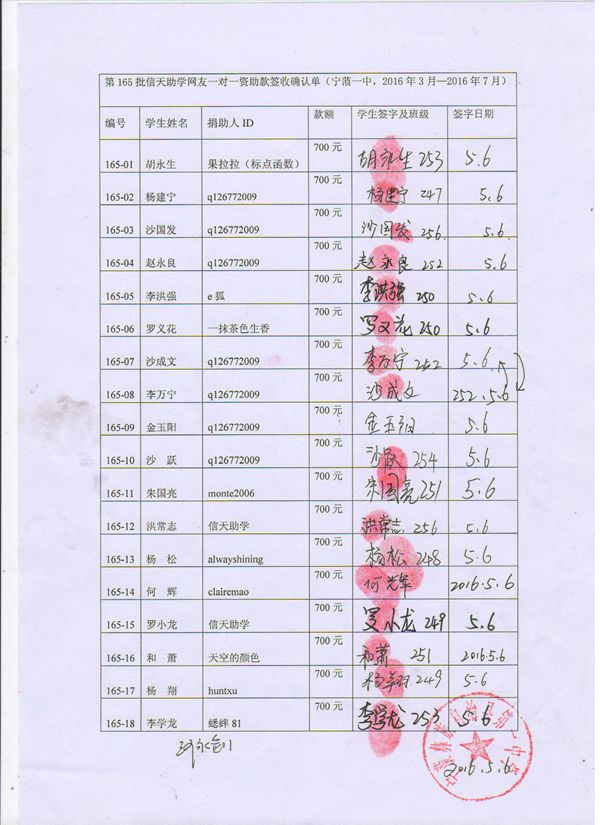 第 165 批信天助学网友一对一资助款签收确认单（宁蒗一中，2016 年 3 月—2016 年 7 月）
编号 学生姓名 捐助人 ID 款额 学生签字及班级 签字日期
165-01 胡永生 果拉拉（标点函数） 700 元 胡永生 253 5.6
165-02 杨建宁 q126772009 700 元 杨建宁 247 5.6
165-03 沙国发 q126772009 700 元 沙国发 256 5.6
165-04 赵永良 q126772009 700 元 赵永良 252 5.6
165-05 李洪强 e 狐 700 元 李洪强 250 5.6
165-06 罗义花 一抹茶色生香 700 元 罗义花 250 5.6
165-07 沙成文 q126772009 700 元 李万宁 252 5.6
165-08 李万宁 q126772009 700 元 沙成文 252. 5.6
165-09 金玉阳 q126772009 700 元 金玉阳 5.6
165-10 沙 跃 q126772009 700 元 沙跃 254 5.6
165-11 朱国亮 monte2006 700 元 朱国亮 251 5.6
165-12 洪常志 信天助学 700 元 洪常志 256 5.6
165-13 杨 松 alwayshining 700 元 杨松 248 5.6
165-14 何 辉 clairemao 700 元 何辉 2016.5.6
165-15 罗小龙 信天助学 700 元 罗小龙 249 5.6
165-16 和 萧 天空的颜色 700 元 和萧 251 2016.5.6
165-17 杨 翔 huntxu 700 元 杨翔 249 5.6
165-18 李学龙 蟋蟀 81 700 元 李学龙 253 5.6
2016.5.6